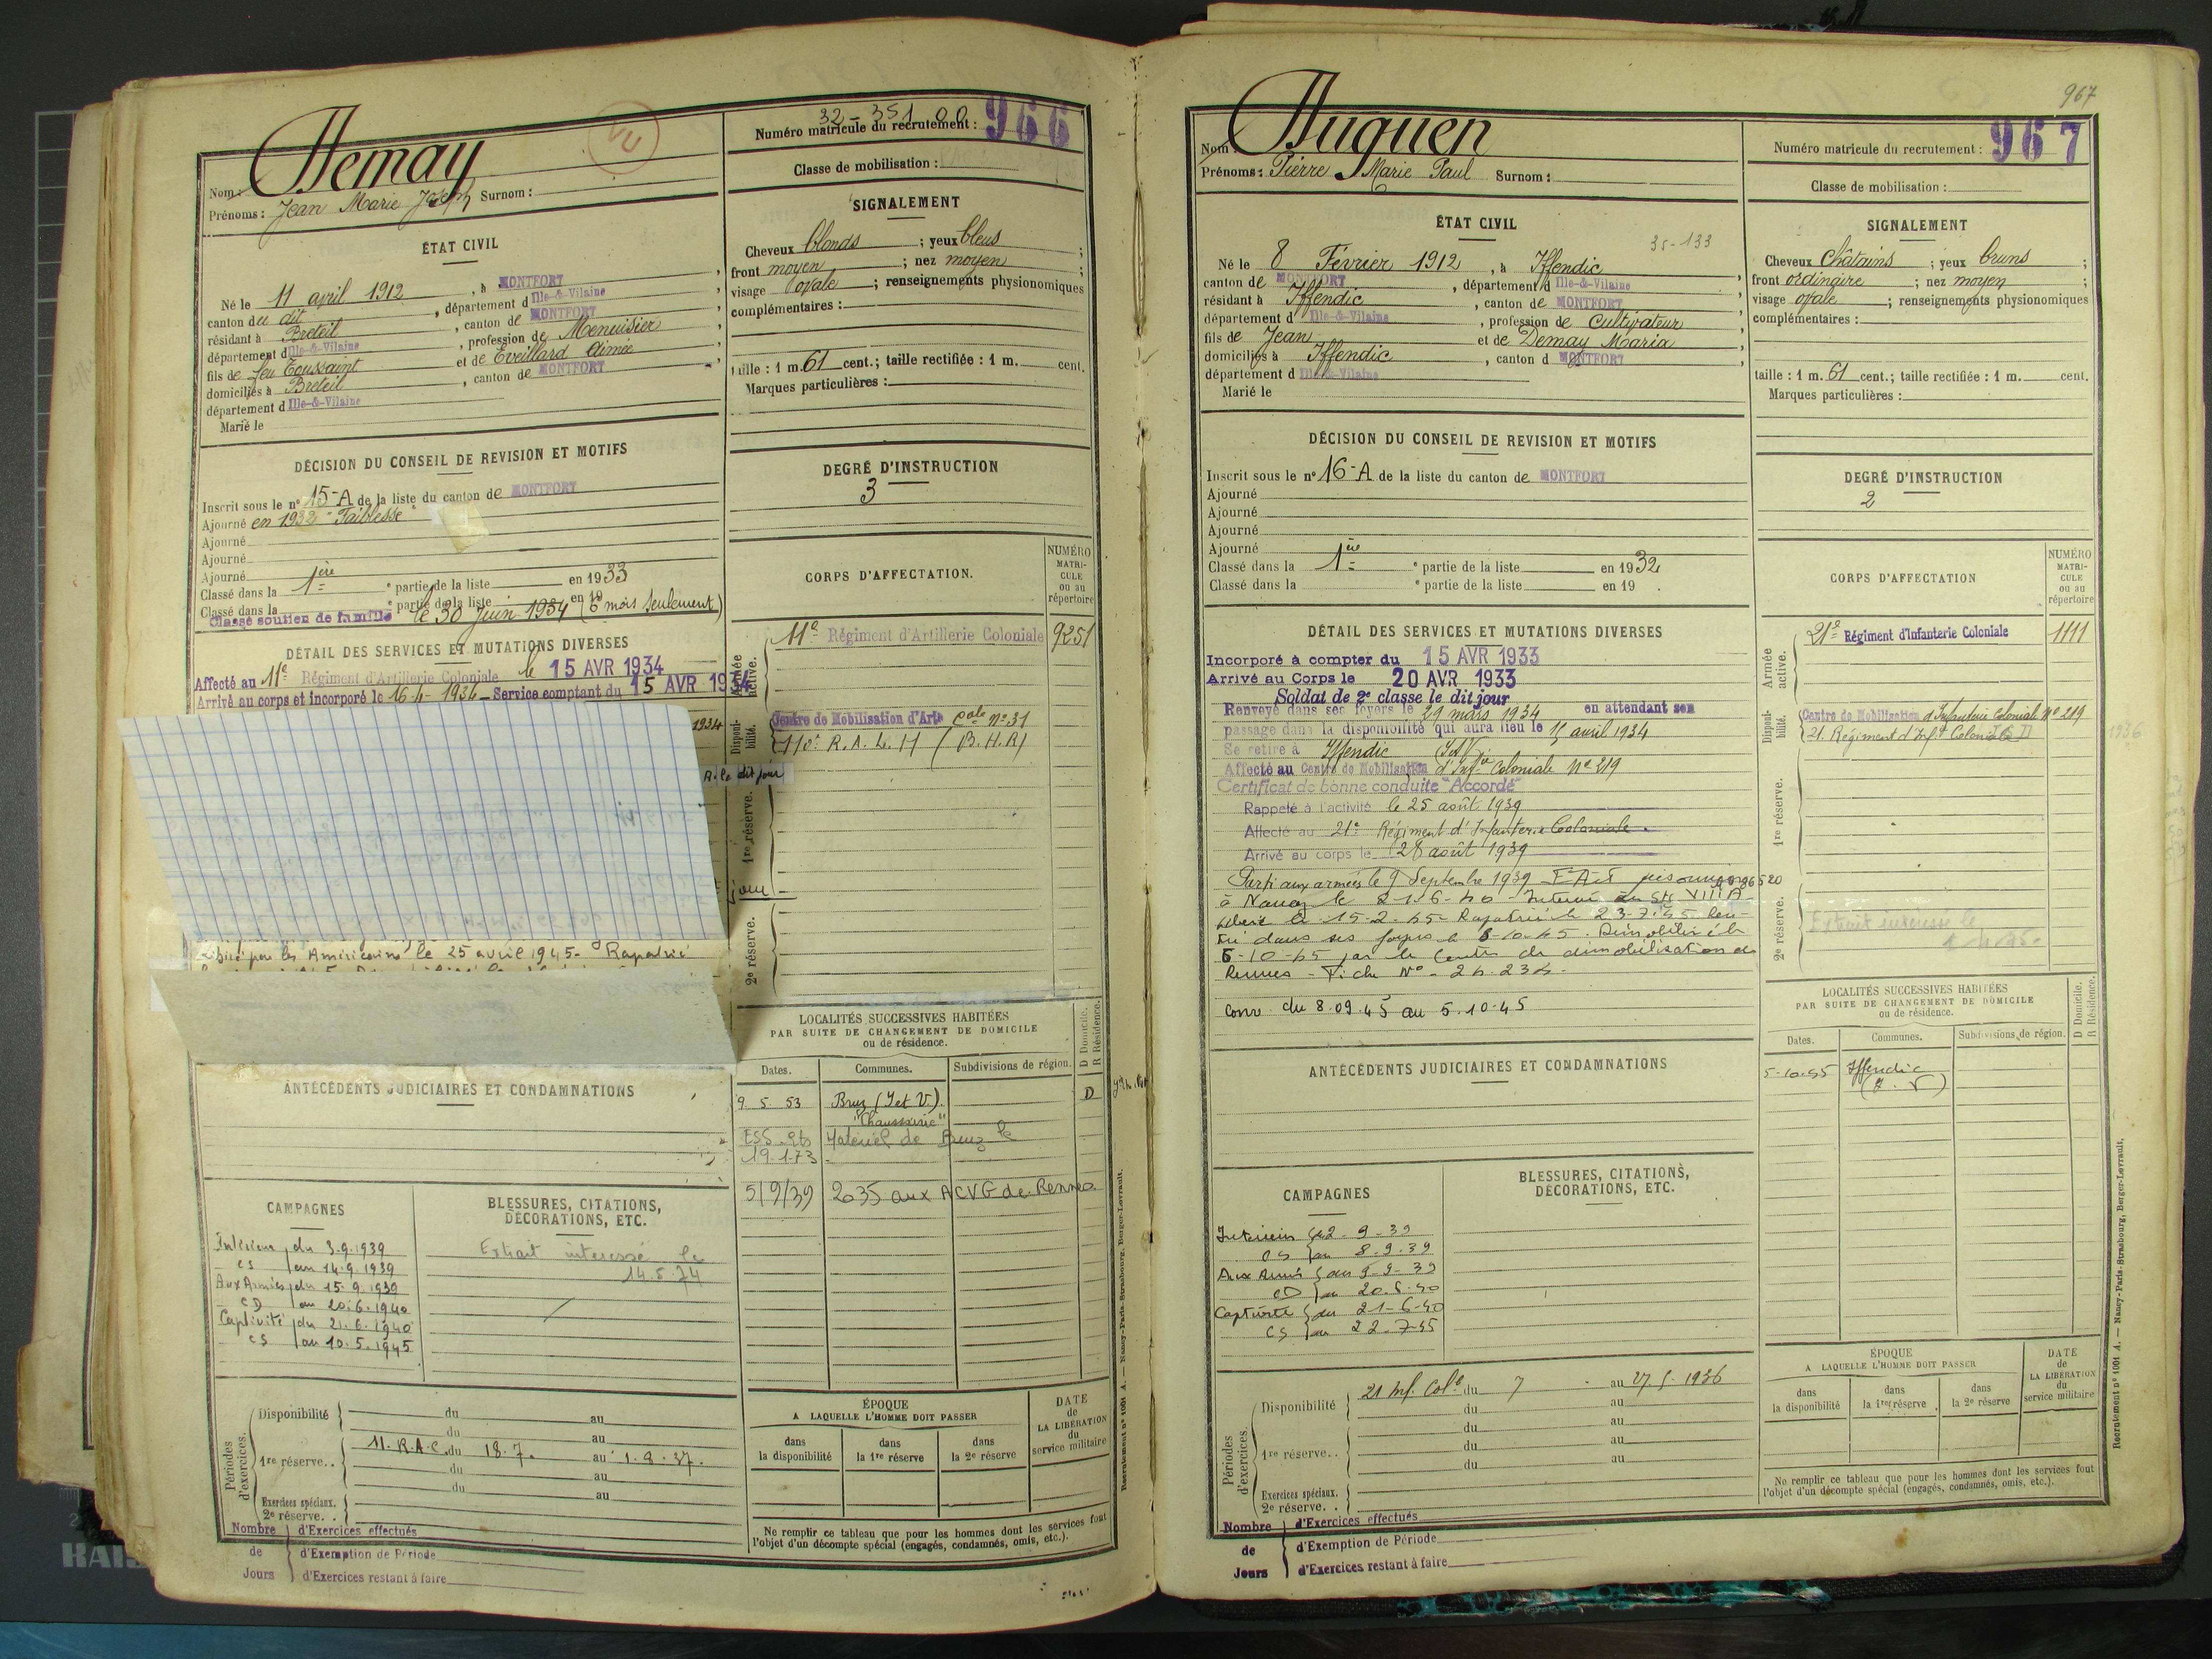 Hemay
32-351 00
Numéro matricule du recrutement : 966
VU
Nom :
Prénoms : Jean Marie Joseph Surnom :
Classe de mobilisation :
ÉTAT CIVIL
Né le 11 avril 1912, à MONTFORT
canton du dit, département d Ille-&-Vilaine
résidant à Breteil, canton de MONTFORT
département d Ille-&-Vilaine, profession de Menuisier
fils de feu Toussaint et de Eveillard Aimée
domiciliés à Breteil, canton de MONTFORT
département d Ille-&-Vilaine
Marié le
SIGNALEMENT
Cheveux blonds ; yeux bleus ;
front moyen ; nez moyen ;
visage ovale ; renseignements physionomiques
complémentaires :
taille : 1 m. 61 cent.; taille rectifiée : 1 m. cent.
Marques particulières :
DÉCISION DU CONSEIL DE REVISION ET MOTIFS
Inscrit sous le n° 15-A de la liste du canton de MONTFORT
Ajourné en 1932 "Faiblesse"
Ajourné
Ajourné
Ajourné
Classé dans la 1ère partie de la liste en 1933
Classé dans la partie de la liste en 19
Classé soutien de famille le 30 Juin 1934 (6 mois seulement)
DEGRÉ D'INSTRUCTION
3
DÉTAIL DES SERVICES ET MUTATIONS DIVERSES
Affecté au 11e Régiment d'Artillerie Coloniale le 15 AVR 1934
Arrivé au corps et incorporé le 16-4-1934 - Service comptant du 15 AVR 1934
1934
A. le dit jour
jour
Libéré par les Américains le 25 avril 1945 - Rapatrié
CORPS D'AFFECTATION.
NUMÉRO MATRICULE ou au répertoire
Armée active.
11e Régiment d'Artillerie Coloniale 9251
Disponibilité.
Centre de Mobilisation d'Arte Cole N° 31
110e R.A.L.H (B.H.R)
1re réserve.
2e réserve.
LOCALITÉS SUCCESSIVES HABITÉES
PAR SUITE DE CHANGEMENT DE DOMICILE
ou de résidence.
Dates. Communes. Subdivisions de région. D Domicile. R Résidence.
9.5.53 Bruz (I et V). D
"Chaussairie"
Matériel de Bruz le
19.1.73
2035 aux ACVG de Rennes
ANTÉCÉDENTS JUDICIAIRES ET CONDAMNATIONS
CAMPAGNES
Intérieur du 3.9.1939
CS au 14.9.1939
Aux Armées du 15.9.1939
CD au 20.6.1940
Captivité du 21.6.1940
CS au 10.5.1945
BLESSURES, CITATIONS,
DÉCORATIONS, ETC.
Extrait interessé le
14.5.74
Périodes d'exercices.
Disponibilité du au
du au
1re réserve.. 11.R.A.C. du 18.7. au 1.9.37.
du au
du au
Exercices spéciaux.
2e réserve. .
Nombre de Jours
d'Exercices effectués
d'Exemption de Période
d'Exercices restant à faire
ÉPOQUE
A LAQUELLE L'HOMME DOIT PASSER
dans la disponibilité dans la 1re réserve dans la 2e réserve
DATE de LA LIBÉRATION du service militaire
Ne remplir ce tableau que pour les hommes dont les services font
l'objet d'un décompte spécial (engagés, condamnés, omis, etc.).
Recrutement n° 1001 A. — Nancy-Paris-Strasbourg, Berger-Levrault.
967
Huguen
Numéro matricule du recrutement : 967
Nom :
Prénoms : Pierre Marie Paul Surnom :
Classe de mobilisation :
ÉTAT CIVIL
35-133
Né le 8 Février 1912, à Iffendic
canton de MONTFORT, département d Ille-&-Vilaine
résidant à Iffendic, canton de MONTFORT
département d Ille-&-Vilaine, profession de Cultivateur
fils de Jean et de Demay Maria
domiciliés à Iffendic, canton d MONTFORT
département d Ille-&-Vilaine
Marié le
SIGNALEMENT
Cheveux Châtains ; yeux bruns ;
front ordinaire ; nez moyen ;
visage ovale ; renseignements physionomiques
complémentaires :
taille : 1 m. 61 cent.; taille rectifiée : 1 m. cent.
Marques particulières :
DÉCISION DU CONSEIL DE REVISION ET MOTIFS
Inscrit sous le n° 16-A de la liste du canton de MONTFORT
Ajourné
Ajourné
Ajourné
Ajourné
Classé dans la 1ère partie de la liste en 1932
Classé dans la partie de la liste en 19 .
DEGRÉ D'INSTRUCTION
2
DÉTAIL DES SERVICES ET MUTATIONS DIVERSES
Incorporé à compter du 15 AVR 1933
Arrivé au Corps le 20 AVR 1933
Soldat de 2e classe le dit jour
Renvoyé dans ses foyers le 29 mars 1934 en attendant son
passage dans la disponibilité qui aura lieu le 15 avril 1934
Se retire à Iffendic I&V
Affecté au Centre de Mobilisation d'Infie Coloniale N° 219
Certificat de bonne conduite "Accordé"
Rappelé à l'activité le 25 août 1939
Affecté au 21e Régiment d'Infanterie Coloniale.
Arrivé au corps le 28 août 1939
Parti aux armées le 9 Septembre 1939 Fait prisonnier
à Nancy le 21-6-40 - Interné au St VIII A
Libéré le 15-2-45 Rapatrié le 23-7-45 Ren-
tré dans ses foyers le 6-10-45. Démobilisé le
6-10-45 par le Centre de démobilisation de
Rennes - Fiche N° 24.234.
Conv. du 8.09.45 au 5.10.45
CORPS D'AFFECTATION
NUMÉRO MATRICULE ou au répertoire
Armée active.
21e Régiment d'Infanterie Coloniale 1111
Disponibilité.
Centre de Mobilisation d'Infanterie Coloniale N° 219
21. Régiment d'Inft Coloniale
1936
1re réserve.
2e réserve.
Extrait interessé le
LOCALITÉS SUCCESSIVES HABITÉES
PAR SUITE DE CHANGEMENT DE DOMICILE
ou de résidence.
Dates. Communes. Subdivisions de région. D Domicile. R Résidence.
5-10-45 Iffendic
(I. V)
ANTÉCÉDENTS JUDICIAIRES ET CONDAMNATIONS
CAMPAGNES
Intérieur du 2-9-39
CS au 8.9.39
Aux Armées du 9-9-39
CD au 20.6.40
Captivité du 21-6-40
CS au 22-7-45
BLESSURES, CITATIONS,
DÉCORATIONS, ETC.
Périodes d'exercices.
Disponibilité 21 Inf. Cole du 7 au 27.5.1936
du au
du au
1re réserve.. du au
du au
Exercices spéciaux.
2e réserve. .
Nombre de Jours
d'Exercices effectués
d'Exemption de Période
d'Exercices restant à faire
ÉPOQUE
A LAQUELLE L'HOMME DOIT PASSER
dans la disponibilité dans la 1re réserve dans la 2e réserve
DATE de LA LIBÉRATION du service militaire
Ne remplir ce tableau que pour les hommes dont les services font
l'objet d'un décompte spécial (engagés, condamnés, omis, etc.).
Recrutement n° 1001 A. — Nancy-Paris-Strasbourg, Berger-Levrault.